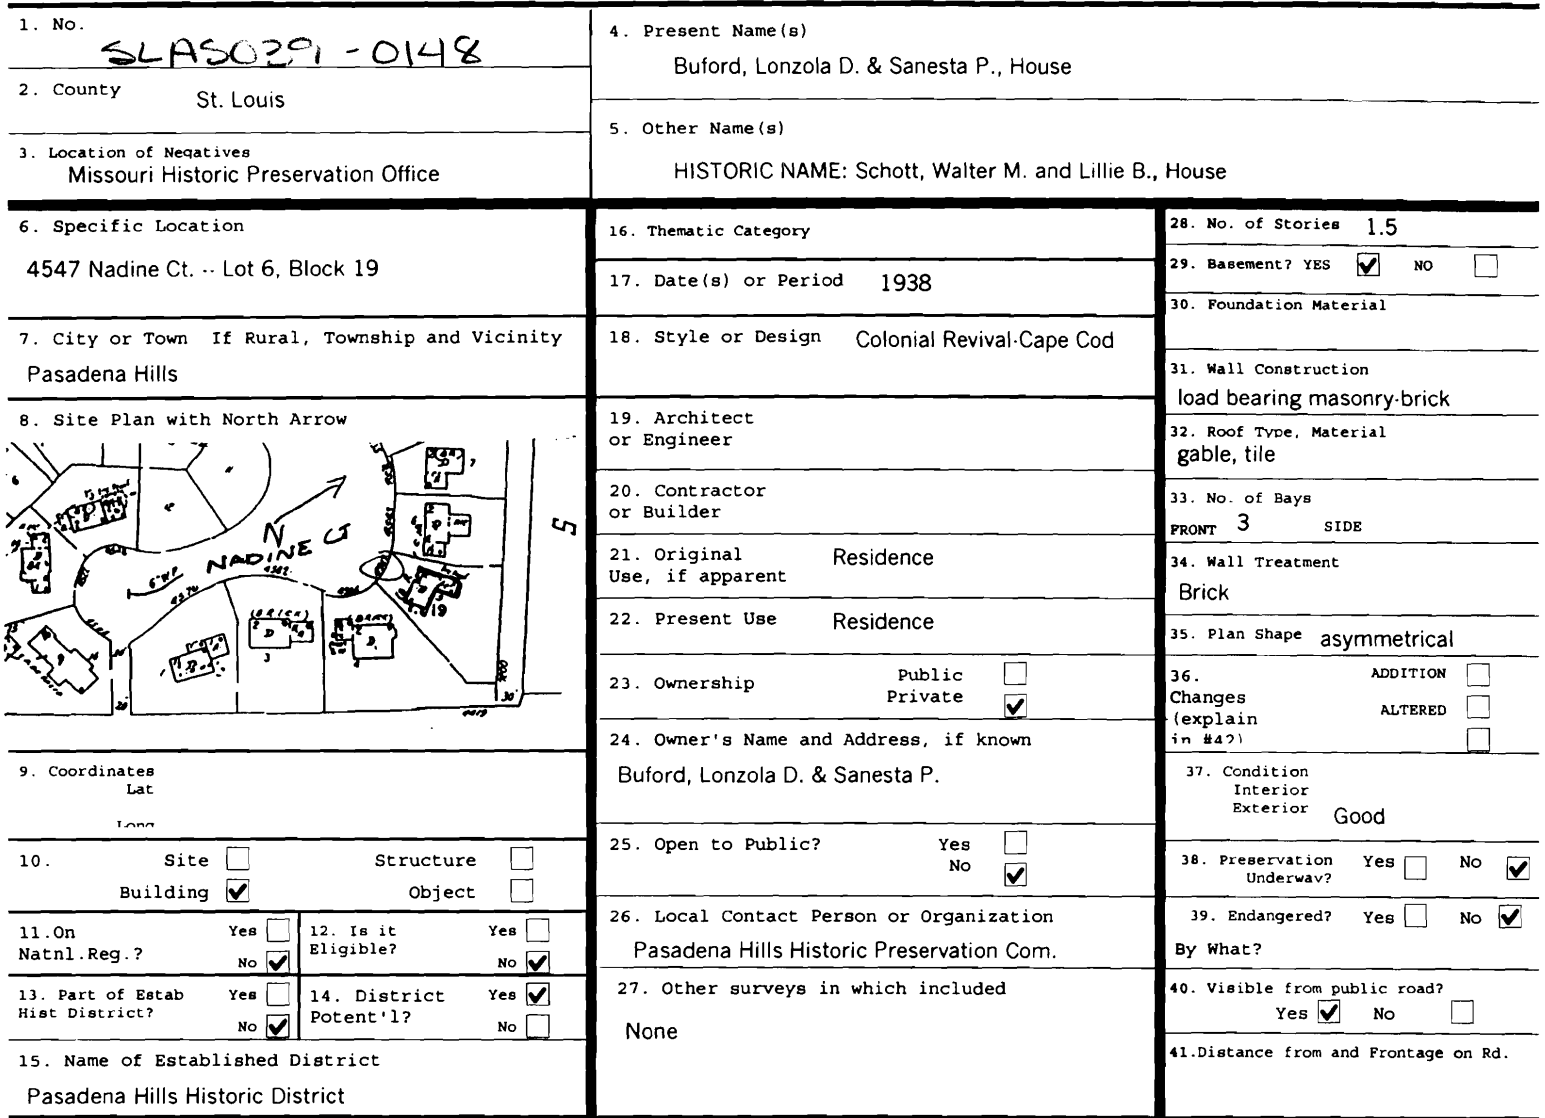 1. No.
SLAS029-0148
2. County
St. Louis
3. Location of Negatives
Missouri Historic Preservation Office
4. Present Name(s)
Buford, Lonzola D. & Sanesta P., House
5. Other Name(s)
HISTORIC NAME: Schott, Walter M. and Lillie B., House
6. Specific Location
4547 Nadine Ct. -- Lot 6, Block 19
7. City or Town If Rural, Township and Vicinity
Pasadena Hills
8. Site Plan with North Arrow
N
NADINE CT
S
6" W.P.
(BRICK)
D
3
19
7
30'
20'
9. Coordinates
Lat
Long
10. Site Structure
Building ✔ Object
11.On Yes
Natnl.Reg.? No ✔
12. Is it Yes
Eligible? No ✔
13. Part of Estab Yes
Hist District? No ✔
14. District Yes ✔
Potent'l? No
15. Name of Established District
Pasadena Hills Historic District
16. Thematic Category
17. Date(s) or Period 1938
18. Style or Design Colonial Revival-Cape Cod
19. Architect
or Engineer
20. Contractor
or Builder
21. Original Residence
Use, if apparent
22. Present Use Residence
23. Ownership Public
Private ✔
24. Owner's Name and Address, if known
Buford, Lonzola D. & Sanesta P.
25. Open to Public? Yes
No ✔
26. Local Contact Person or Organization
Pasadena Hills Historic Preservation Com.
27. Other surveys in which included
None
28. No. of Stories 1.5
29. Basement? YES ✔ NO
30. Foundation Material
31. Wall Construction
load bearing masonry-brick
32. Roof Type, Material
gable, tile
33. No. of Bays
FRONT 3 SIDE
34. Wall Treatment
Brick
35. Plan Shape asymmetrical
36. ADDITION
Changes
(explain ALTERED
in #42)
37. Condition
Interior
Exterior Good
38. Preservation Yes No ✔
Underway?
39. Endangered? Yes No ✔
By What?
40. Visible from public road?
Yes ✔ No
41.Distance from and Frontage on Rd.